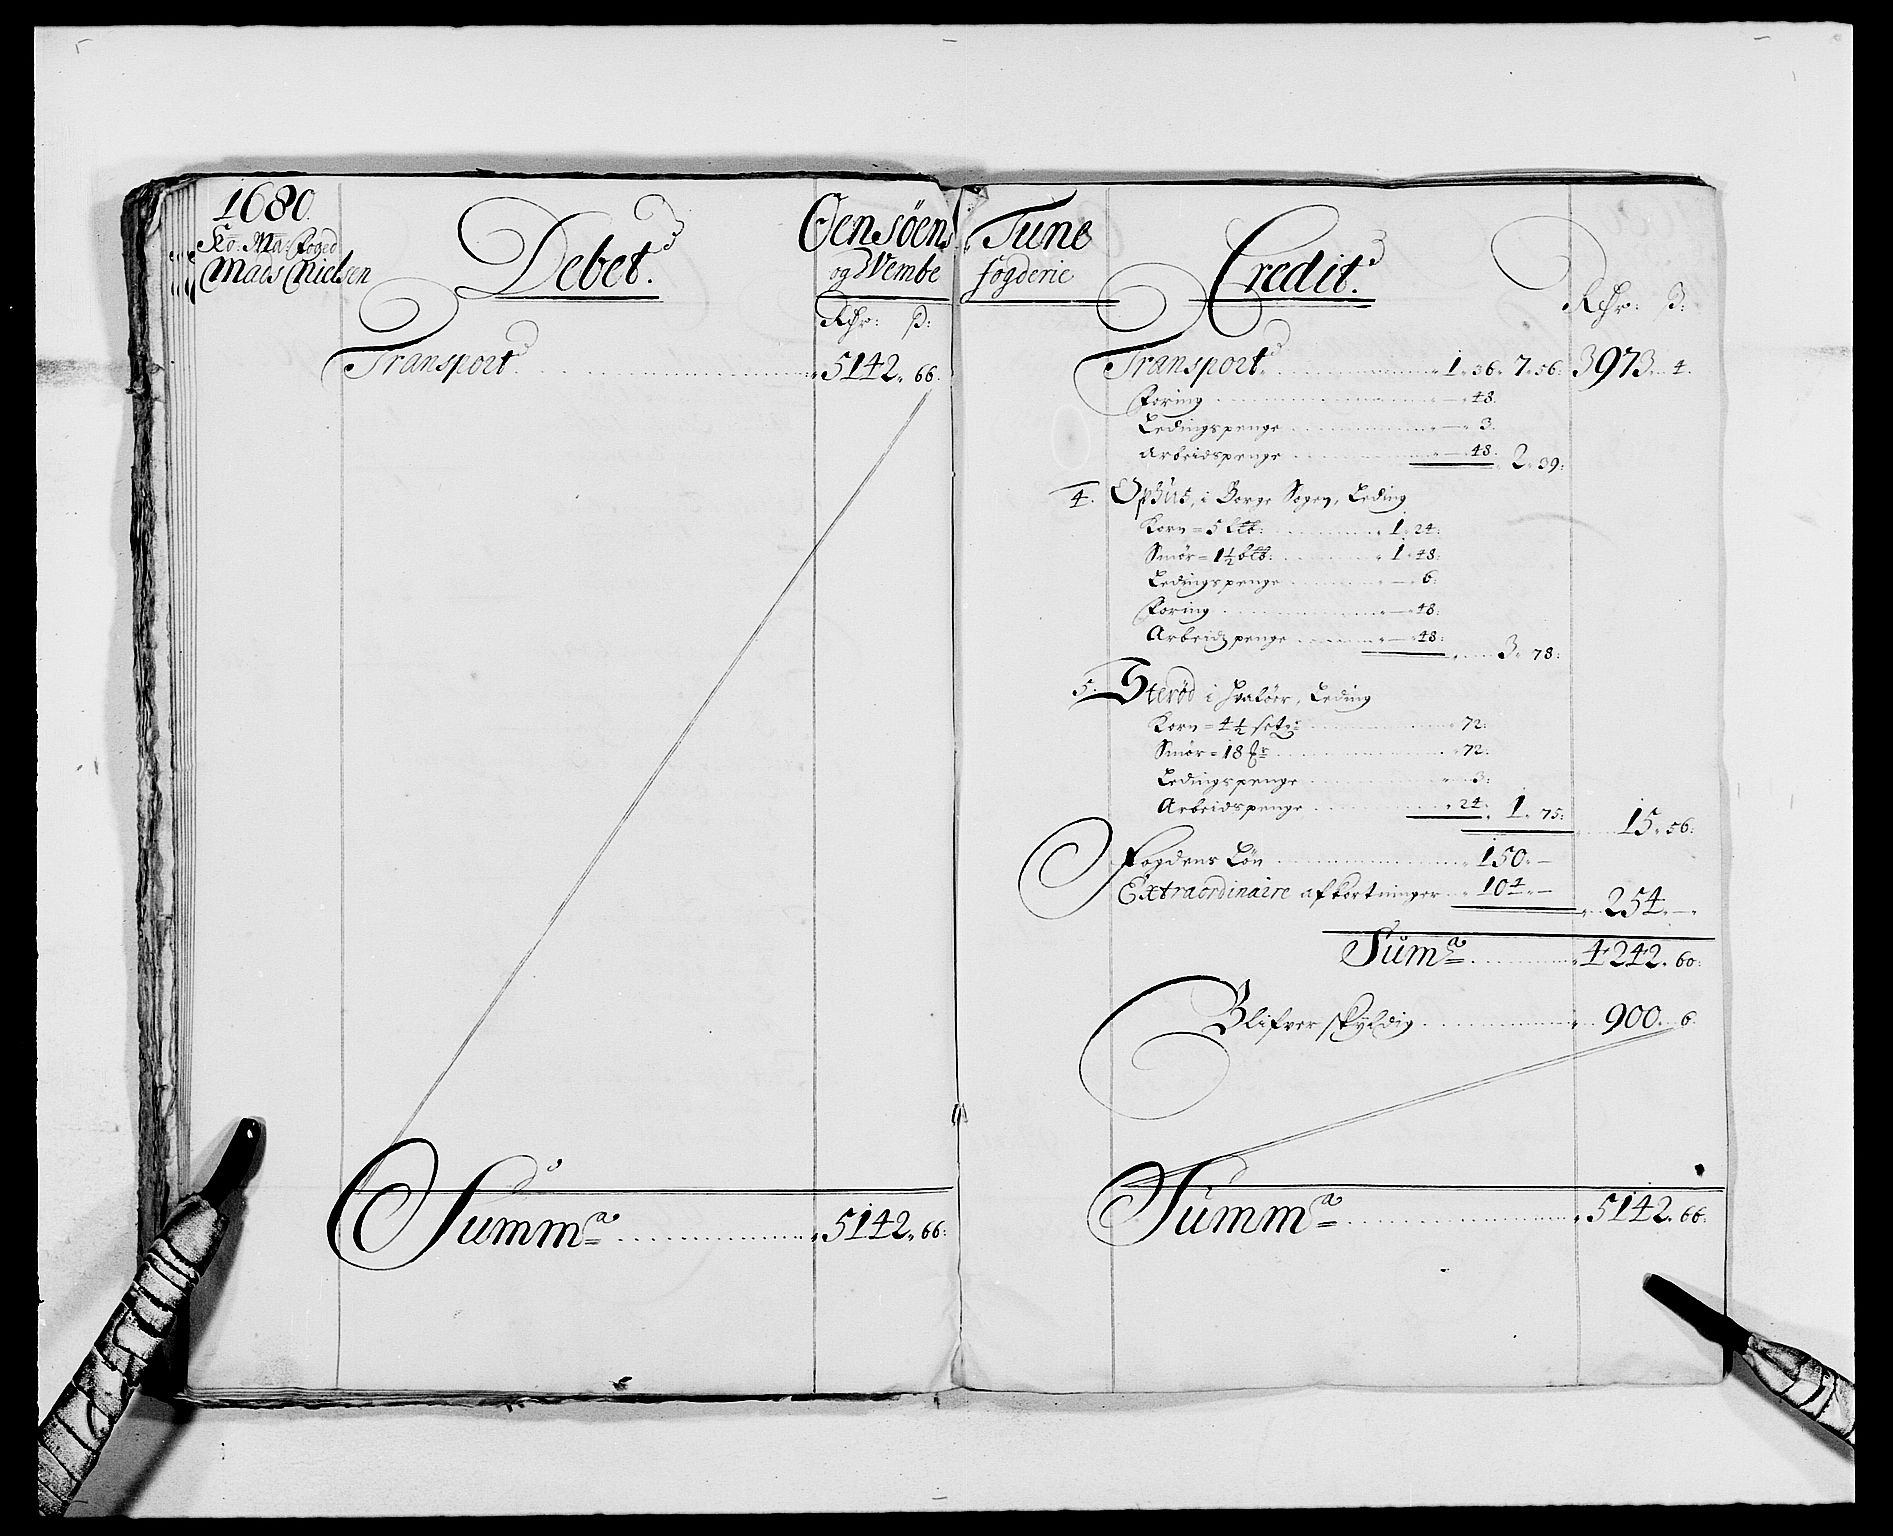 1680.
Ko: Ma: Foged
Mads Nielsen
Debet.
Oensöens
og Wembe
Rdr: s:
Transport 5142. 66.
Summa 5142. 66:
Tune
fogderie
Credit.
Rdr: s:
Transport 1. 36. 7. 56: 3973. 4.
Foring — 48.
Ledingspenge — 3.
Arbeidspenge — 48. 2. 39:
4. Ophus, i Borge Sogen, Leding
Korn = 5 1. 24:
Smör = 1½ 1. 48:
Ledingspenge — 6:
Foring — 48:
Arbeidspenge — 48: 3. 78:
5. Sterød i Hvalöer, Leding
Korn = 4½ 72:
Smör = 18 72:
Ledingspenge 3:
Arbeidspenge 24. 1. 75: 15. 56:
Fogdens Lön 150. —
Extraordinaire afkortninger 104. — 254. —
Suma 4242. 60:
Blifver skyldig 900. 6.
Summa 5142. 66: